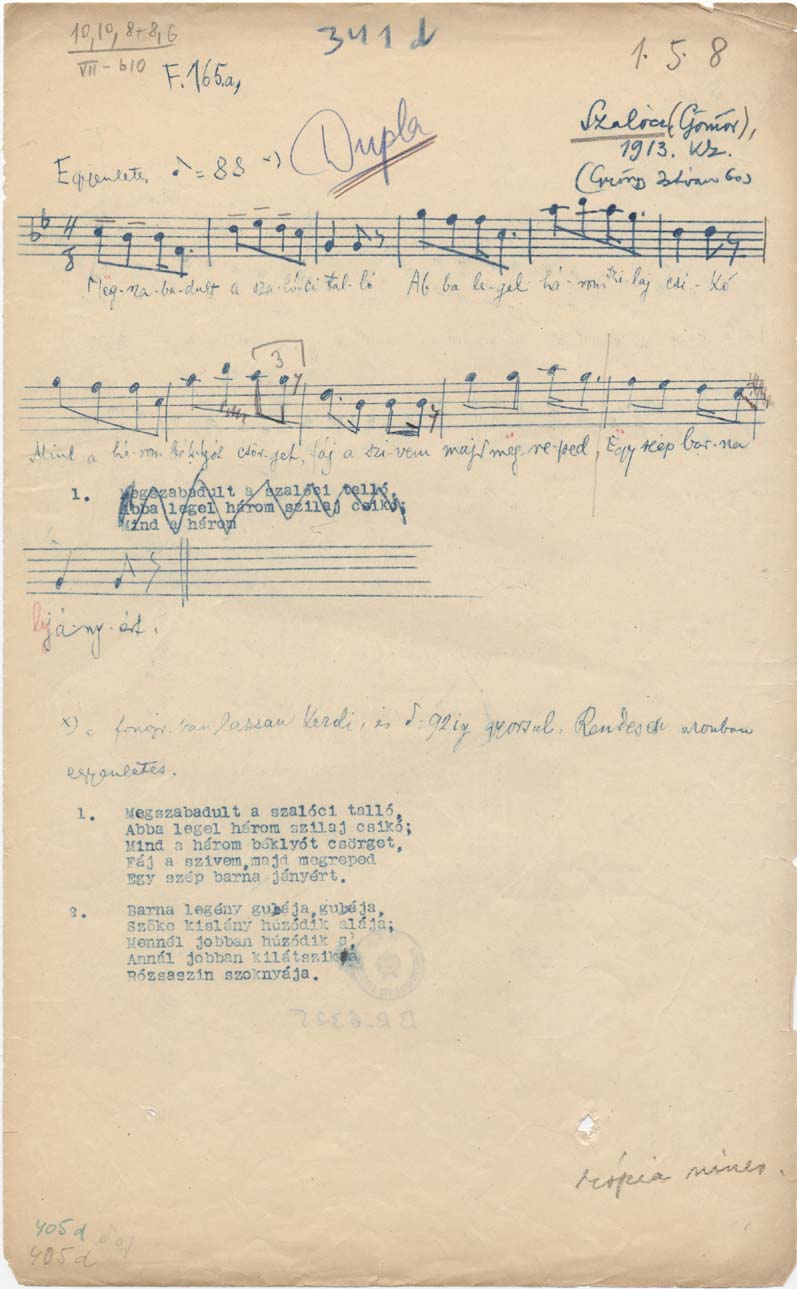 10, 10, 8+8, 6
VII - b10
F. 165.a,
341 d
1. 5. 8
Dupla
Szalóc (Gömör),
1913. Kz.
(György István 60)
Egyenletes ♪ = 88 x)
Még-sza-ba-dult a sza-ló-ci tal-ló Ab-ba le-gel há-rom szi-laj csi-kó
3
Mind a há-rom csör-get, fáj a szi-vem majd még-re-ped, Égy szép bar-na
1. Megszabadult a szalóci talló,
Abba legel három szilaj csikó;
Mind a három
já-ny-ért.
x) a fonogr.-ban lassan kezdi, és ♪=92ig gyorsul. Rendesen azonban
egyenletes.
1. Megszabadult a szalóci talló,
Abba legel három szilaj csikó;
Mind a három béklyót csörget,
Fáj a szivem,majd megreped
Egy szép barna jányért.
2. Barna legény gubája,gubája,
Szőke kislány húzódik alája;
Mennél jobban húzódik
Annál jobban kilátszik
Rózsaszín szoknyája.
kópia nincs.
405 d
405 d